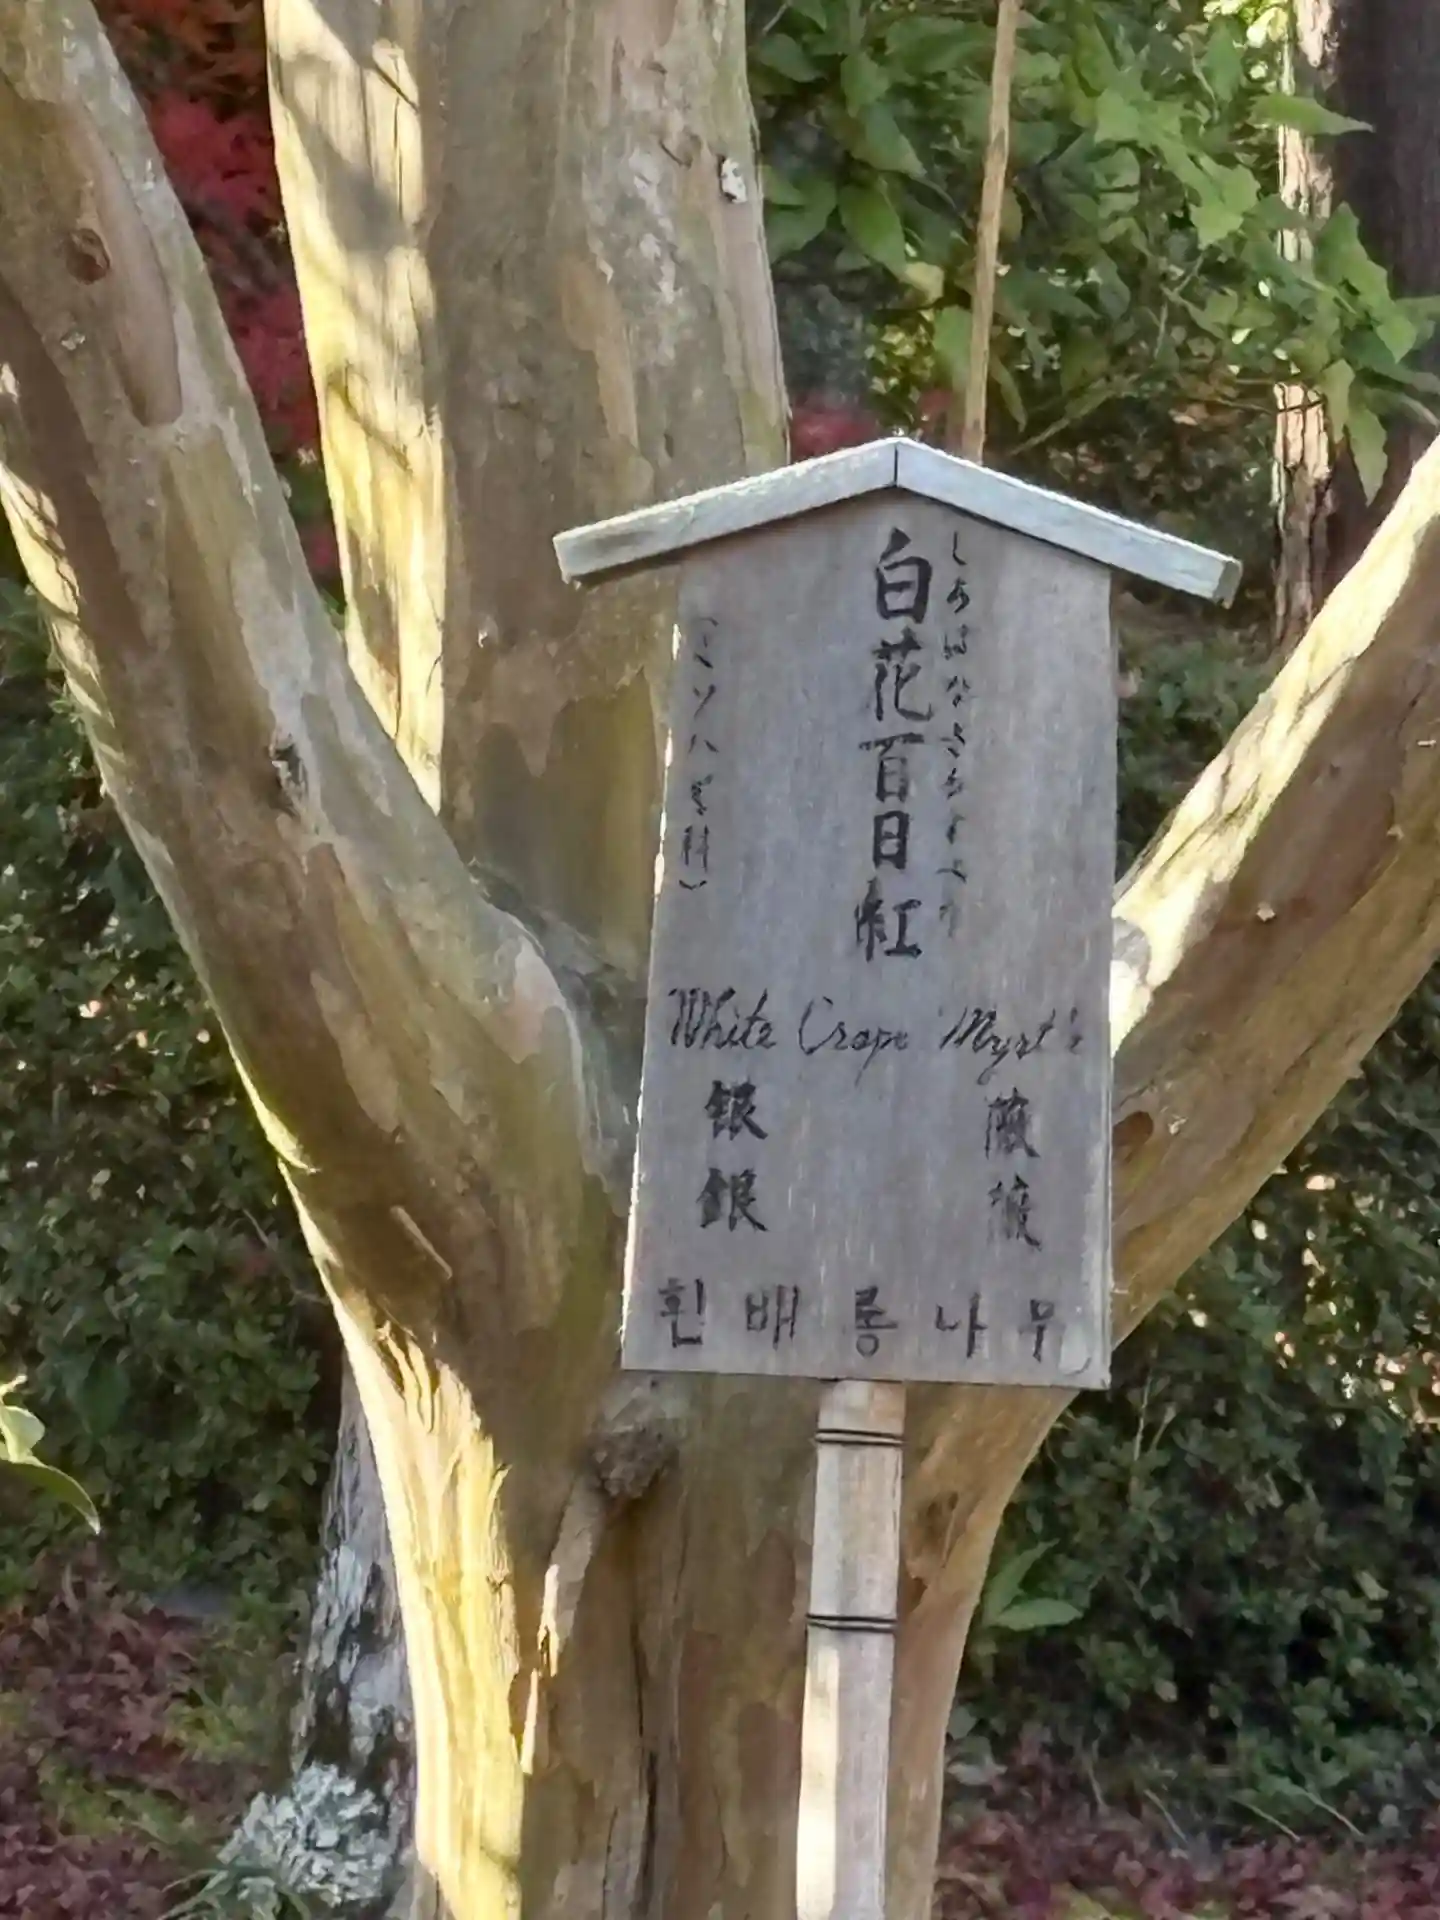 しろばなさるすべり
白花百日紅
（ミソハギ科）
White Crape Myrtle
銀薇
銀薇
흰배롱나무